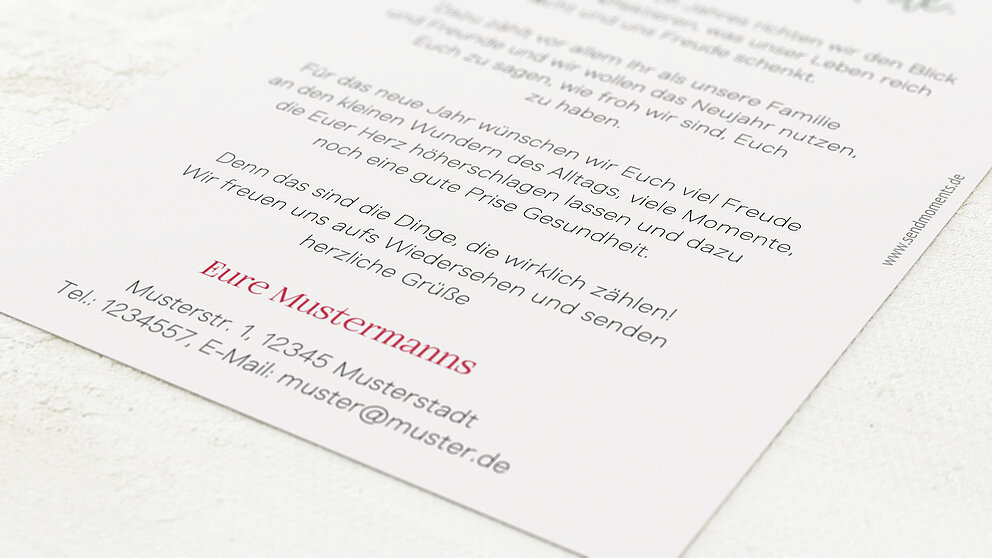 Jahres richten wir den Blick
was unser Leben reich
und uns Freude schenkt.
Dazu zählt vor allem Ihr als unsere Familie
und Freunde und wir wollen das Neujahr nutzen,
Euch zu sagen, wie froh wir sind, Euch
zu haben.
Für das neue Jahr wünschen wir Euch viel Freude
an den kleinen Wundern des Alltags, viele Momente,
die Euer Herz höherschlagen lassen und dazu
noch eine gute Prise Gesundheit.
Denn das sind die Dinge, die wirklich zählen!
Wir freuen uns aufs Wiedersehen und senden
herzliche Grüße
Eure Mustermanns
Musterstr. 1, 12345 Musterstadt
Tel.: 1234557, E-Mail: muster@muster.de
www.sendmoments.de